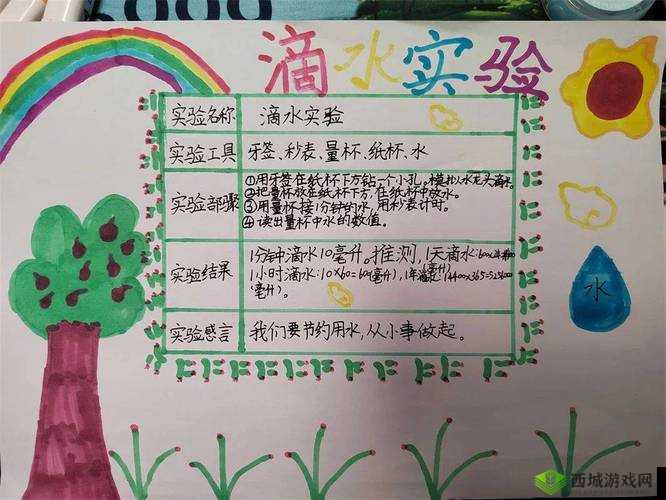 滴水实验
实验名称
滴水实验
实验工具
牙签、秒表、量杯、纸杯、水
实验部骤
①用牙签在纸杯下方钻一个小孔,模拟水龙头滴水。
②把量杯放在纸杯下方,在纸杯中放水。
③用量杯接1分钟的水,用秒表计时。
④读出量杯中水的数值。
实验结果
1分钟滴水10毫升。推测,1天滴水:600
1小时滴水:10×60=600(毫升),1年滴水:14400×365=5256000
(毫升)
毫升)。
实验感言
我们要节约用水,从小事做起。
水
西城游戏网